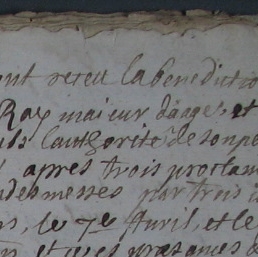 ont receu la benedictio
Roy maieur d'aage, et
l'authorité de son pe
apres trois proclam
des messes par trois
le 7e Avril, et le
et